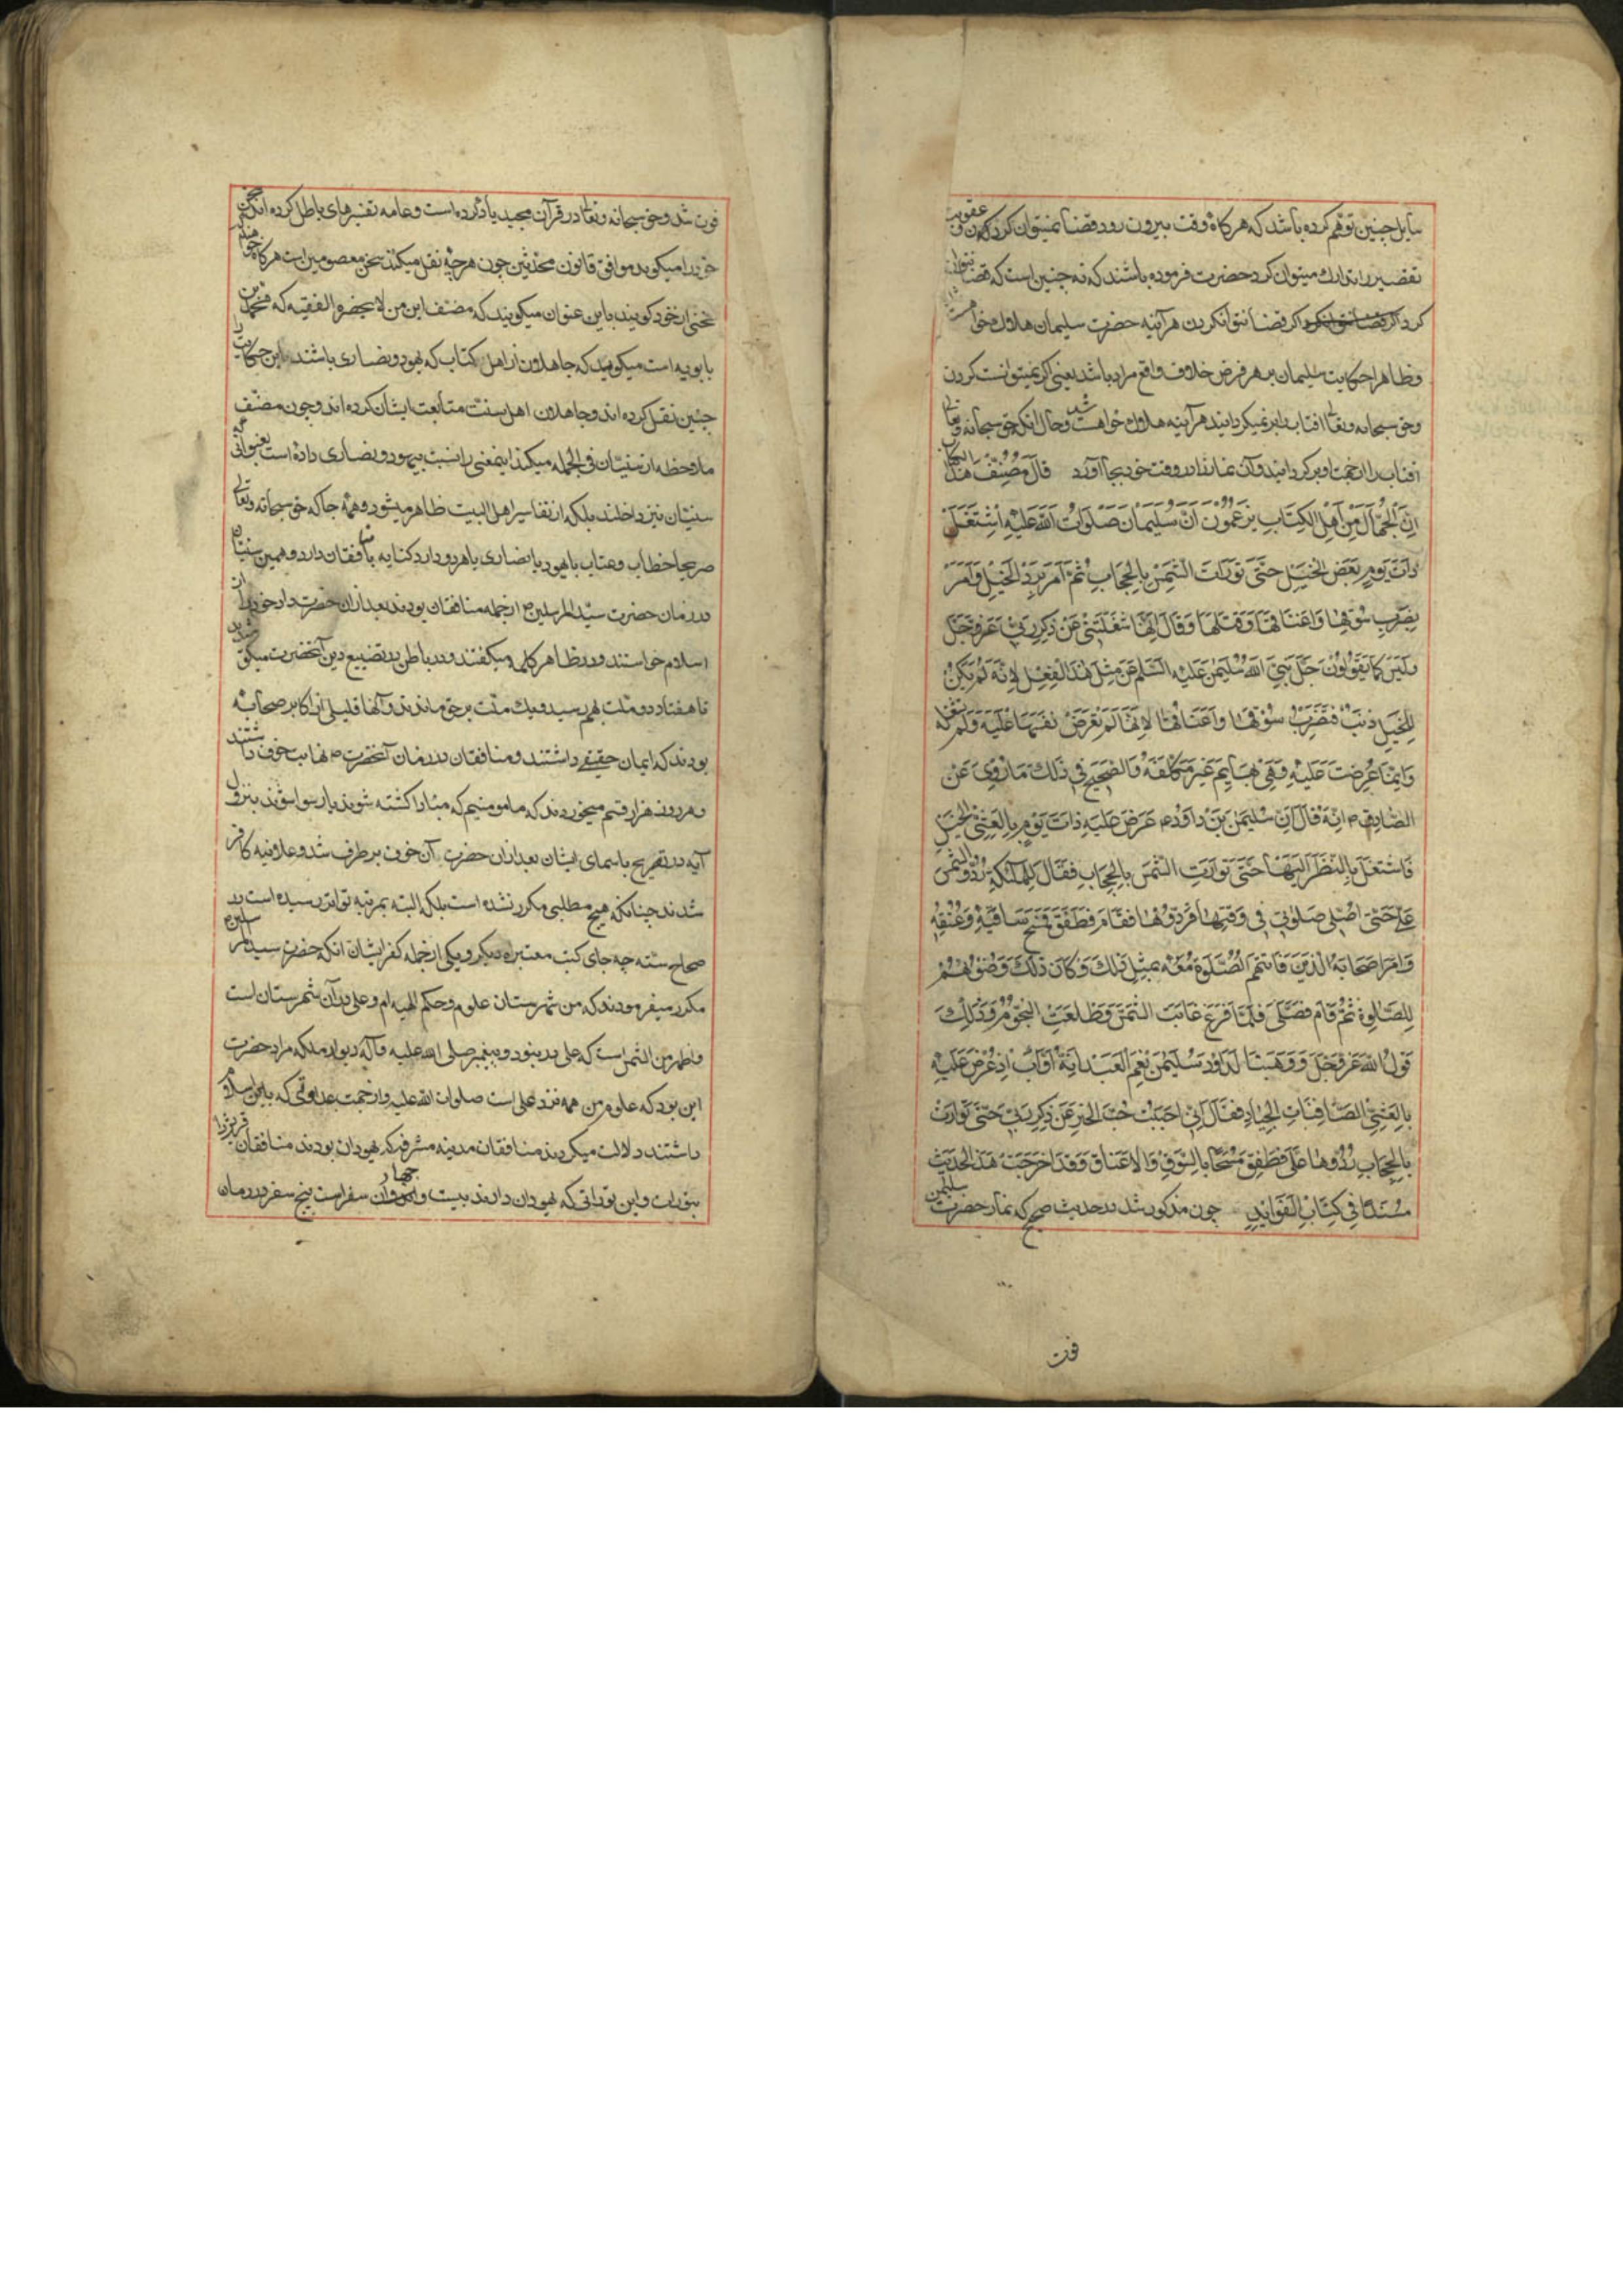 سایل چنین توهم کرده باشد که هرکاه وقت بیرون رود قضا نمیتوان کرد و عقوبت
تقصیر را تدارک میتوان کرد حضرت فرموده باشند که نه چنین است که قضا نتوان
کرد اکر قضا نتوان کردن هرآینه حضرت سلیمان هلاک میخواست
و ظاهرا حکایت سلیمان بر هر فرض خلاف واقع مراد باشد یعنی اکر نمیتوانست کردن
و حق سبحانه و تعالی افتاب را بر نمیکردانید هرآینه هلاک خواهست شد و حال آنکه حق سبحانه و تعالی
افتاب را از جهت او برکردانید و آن نماز را در وقت خود بجا آورد قَالَ مُصَنِّفُ هذا الکتاب
اِنَّ الْجُهَّالَ مِنْ اَهْلِ الْکِتَابِ یَزْعَمُوْنَ اَنَّ سُلَیْمَانَ صَلَوَاتُ اللّٰهِ عَلَیْهِ اشْتَغَلَ
ذَاتَ یَوْمٍ بِعَرْضِ الْخَیْلِ حَتّٰی تَوَارَتِ الشَّمْسُ بِالْحِجَابِ ثُمَّ اَمَرَ بِرَدِّ الْخَیْلِ وَ اَمَرَ
بِضَرْبِ سُوْقِهَا وَ اَعْنَاقِهَا وَ قَتْلِهَا وَ قَالَ اِنَّهَا شَغَلَتْنِیْ عَنْ ذِکْرِ رَبِّیْ عَزَّ وَ جَلَّ
وَ لَیْسَ کَمَا یَقُوْلُوْنَ جَلَّ نَبِیُّ اللّٰهِ سُلَیْمٰنُ عَلَیْهِ السَّلَمُ عَنْ مِثْلِ هٰذَا الْفِعْلِ لِاَنَّهُ لَمْ یَکُنْ
لِلْخَیْلِ ذَنْبٌ فَیَضْرِبَ سُوْقَهَا وَ اَعْنَاقَهَا لِاَنَّهَا لَمْ تَعْرِضْ نَفْسَهَا عَلَیْهِ وَ لَمْ تَشْغَلْهُ
وَ اِنَّمَا عُرِضَتْ عَلَیْهِ وَ هِیَ بَهَایِمُ غَیْرُ مُکَلَّفَةٍ وَ الصَّحِیْحُ فِیْ ذٰلِکَ مَا رُوِیَ عَنِ
الصَّادِقِ م اِنَّهُ قَالَ اِنَّ سُلَیْمٰنَ بْنَ دَاوُدَ م عُرِضَ عَلَیْهِ ذَاتَ یَوْمٍ بِالْعَشِیِّ الْخَیْلُ
فَاشْتَغَلَ بِالنَّظَرِ اِلَیْهَا حَتّٰی تَوَارَتِ الشَّمْسُ بِالْحِجَابِ فَقَالَ لِلْمَلٰئِکَةِ رُدُّوا الشمس
عَلَیَّ حَتّٰی اُصَلِّیَ صَلٰوتِیْ فِیْ وَقْتِهَا فَرَدُّوْهَا فَقَامَ فَطَفِقَ فَمَسَحَ سَاقَیْهِ وَ عُنُقَهُ
وَ اَمَرَ اَصْحَابَهُ الَّذِیْنَ فَاتَتْهُمُ الصَّلٰوةُ مَعَهُ بِمِثْلِ ذٰلِکَ وَ کَانَ ذٰلِکَ وَضُوْئَهُمْ
لِلصَّلٰوةِ ثُمَّ قَامَ فَصَلّٰی فَلَمَّا فَرَغَ غَابَتِ الشَّمْسُ وَ طَلَعَتِ النُّجُوْمُ وَ ذٰلِکَ
قَوْلُ اللّٰهِ عَزَّ وَ جَلَّ وَ وَهَبْنَا لِدَاوُدَ سُلَیْمٰنَ نِعْمَ الْعَبْدُ اِنَّهُ اَوَّابٌ اِذْ عُرِضَ عَلَیْهِ
بِالْعَشِیِّ الصَّافِنَاتُ الْجِیَادُ فَقَالَ اِنِّیْ اَحْبَبْتُ حُبَّ الْخَیْرِ عَنْ ذِکْرِ رَبِّیْ حَتّٰی تَوَارَتْ
بِالْحِجَابِ رُدُّوْهَا عَلَیَّ فَطَفِقَ مَسْحًا بِالسُّوْقِ وَ الْاَعْنَاقِ وَ قَدْ اَخْرَجْتُ هٰذَا الْحَدِیْثَ
مُسْنَدًا فِیْ کِتَابِ الْفَوَایِدِ چون مذکور شد در حدیث صحیح که نماز حضرت سلیمن
فوت
فوت شد و حق سبحانه و تعالی در قرآن مجید یاد کرده است و عامه تفسیرهای باطل کرده اند
خود را میکوید موافق قانون محدثین چون هرچه نقل میکنند سخن معصومین است هرکاه خواهند
سخنی از خود کویند باین عنوان میکویند که مصنف این من لا یحضره الفقیه که محمد بن
بابویه است میکوید که جاهلان از اهل کتاب که یهود و نصاری باشند این حکایت را
چنین نقل کرده اند و جاهلان اهل سنت متابعت ایشان کرده اند و چون مصنف
ملاحظه از سنیان فی الجمله میکند اینمعنی را نسبت بیهود و نصاری داده است بعنوانی که
سنیان نیز داخلند بلکه از تفاسیر اهل البیت ظاهر میشود و همه جا که حق سبحانه و تعالی
صریحا خطاب و عتاب با یهود یا نصاری یا هر دو دارد کنایه بمنافقان دارد و همین سنیان
در زمان حضرت سید المرسلین م از جمله منافقان بودند بعد از آن حضرت داد خود را از
اسلام خواستند و در ظاهر کلمه میکفتند و در باطن در تضییع دین آنحضرت میکوشیدند
تا هفتاد دو ملت بهم رسید و یک ملت بر حق ماندند و آنها قلیلی از اکابر صحابه
بودند که ایمان حقیقی داشتند و منافقان در زمان آنحضرت م نهایت خوف داشتند
و هر روز هزار قسم میخوردند که ما مومنیم که مبادا کشته شوند یا رسوا شوند بنزول
آیه در تصریح باسمای ایشان بعد از آن حضرت آن خوف بر طرف شد و علانیه کافر
شدند چنانکه هیچ مطلبی مکرر نشده است بلکه البته بمرتبه تواتر رسیده است در
صحاح سته چه جای کتب معتبره دیکر و یکی از جمله کفر ایشان آنکه حضرت سید المرسلین م
مکرر میفرمودند که من شهرستان علوم و حکم الهیه ام و علی در آن شهرستان است
و اظهر من الشمس است که علی در نبود و پیغمبر صلی الله علیه و آله دیوار بلکه مراد حضرت
این بود که علوم من همه نزد علی است صلوات الله علیه و از جهت عداوتی که با این
داشتند دلالت میکردند منافقان مدینه مشرفه که یهودان بودند منافقان
بتورات و این توراتی که یهودان دارند بیست و چهار سفر است پنج سفر در زمان